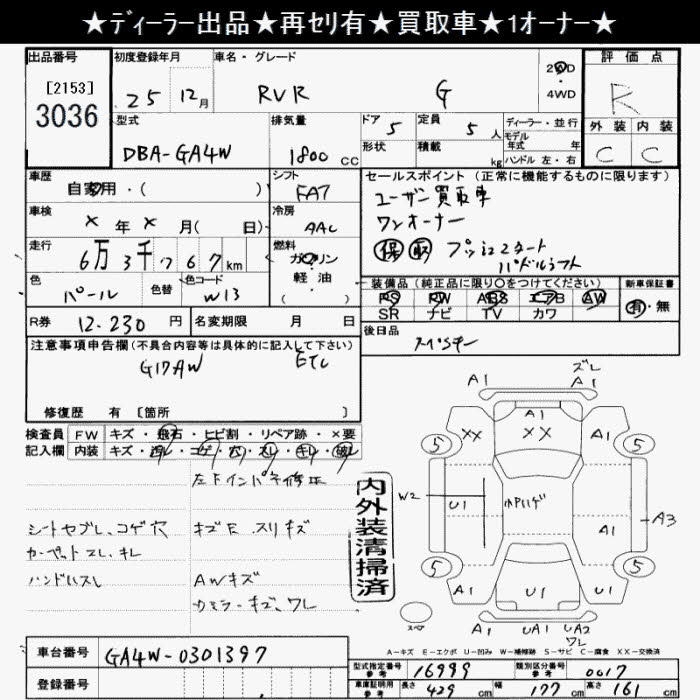 ★ディーラー出品★再セリ有★買取車★1オーナー★
出品番号 初度登録年月 車名・グレード 評価点
[2153]
3036
25 12月 RVR G 2WD
4WD
R
型式 排気量 ドア 定員 ディーラー・並行 外装 内装
DBA-GA4W 1800cc 5 5人 モデル年式 年
形状 積載 kg ハンドル 左・右 C C
車歴 シフト セールスポイント(正常に機能するものに限ります)
自家用・( ) FA7 ユーザー買取車
車検 冷房 ワンオーナー
×年×月( 日) AAC 保 取 プッシュスタート
走行 燃料 パドルシフト
6万3千767km ガソリン
軽・油
( )
色 色替 色コード 装備品(純正品に限り〇をつけてください) 新車保証書
パール W13 PS PW ABS エアB AW 有・無
SR ナビ TV カワ
R券 12.230円 名変期限 月 日 後日品
注意事項申告欄(不具合内容等は具体的に記入して下さい) スペアキー
G17AW ETC
修復歴 有 [箇所 ]
検査員 FW キズ・飛石・ヒビ割・リペア跡・×要
記入欄 内装 キズ・汚レ・コゲ・穴・スレ・キレ・破レ
左下インパネ修正
シートヤブレ、コゲ穴 キズE スリキズ
カーペットスレ、キレ
ハンドルスレ AWキズ
カメラーキズ、ワレ
内外装清掃済
A1 ズレ
A1
A1
XX XX A1
5 5
W2 U1 小P11ゲ A1 A3
5 5
A1 U1 U1
スペア A1 UA1 UA2
ワレ
A-キズ E-エクボ U-凹み W-補修跡 S-サビ C-腐食 XX-交換済
車台番号 GA4W-0301397
登録番号
型式指定番号 参考 16999 類別区分番号 参考 0017
車庫証明用 参考 長さ 429cm 幅 177cm 高さ 161cm